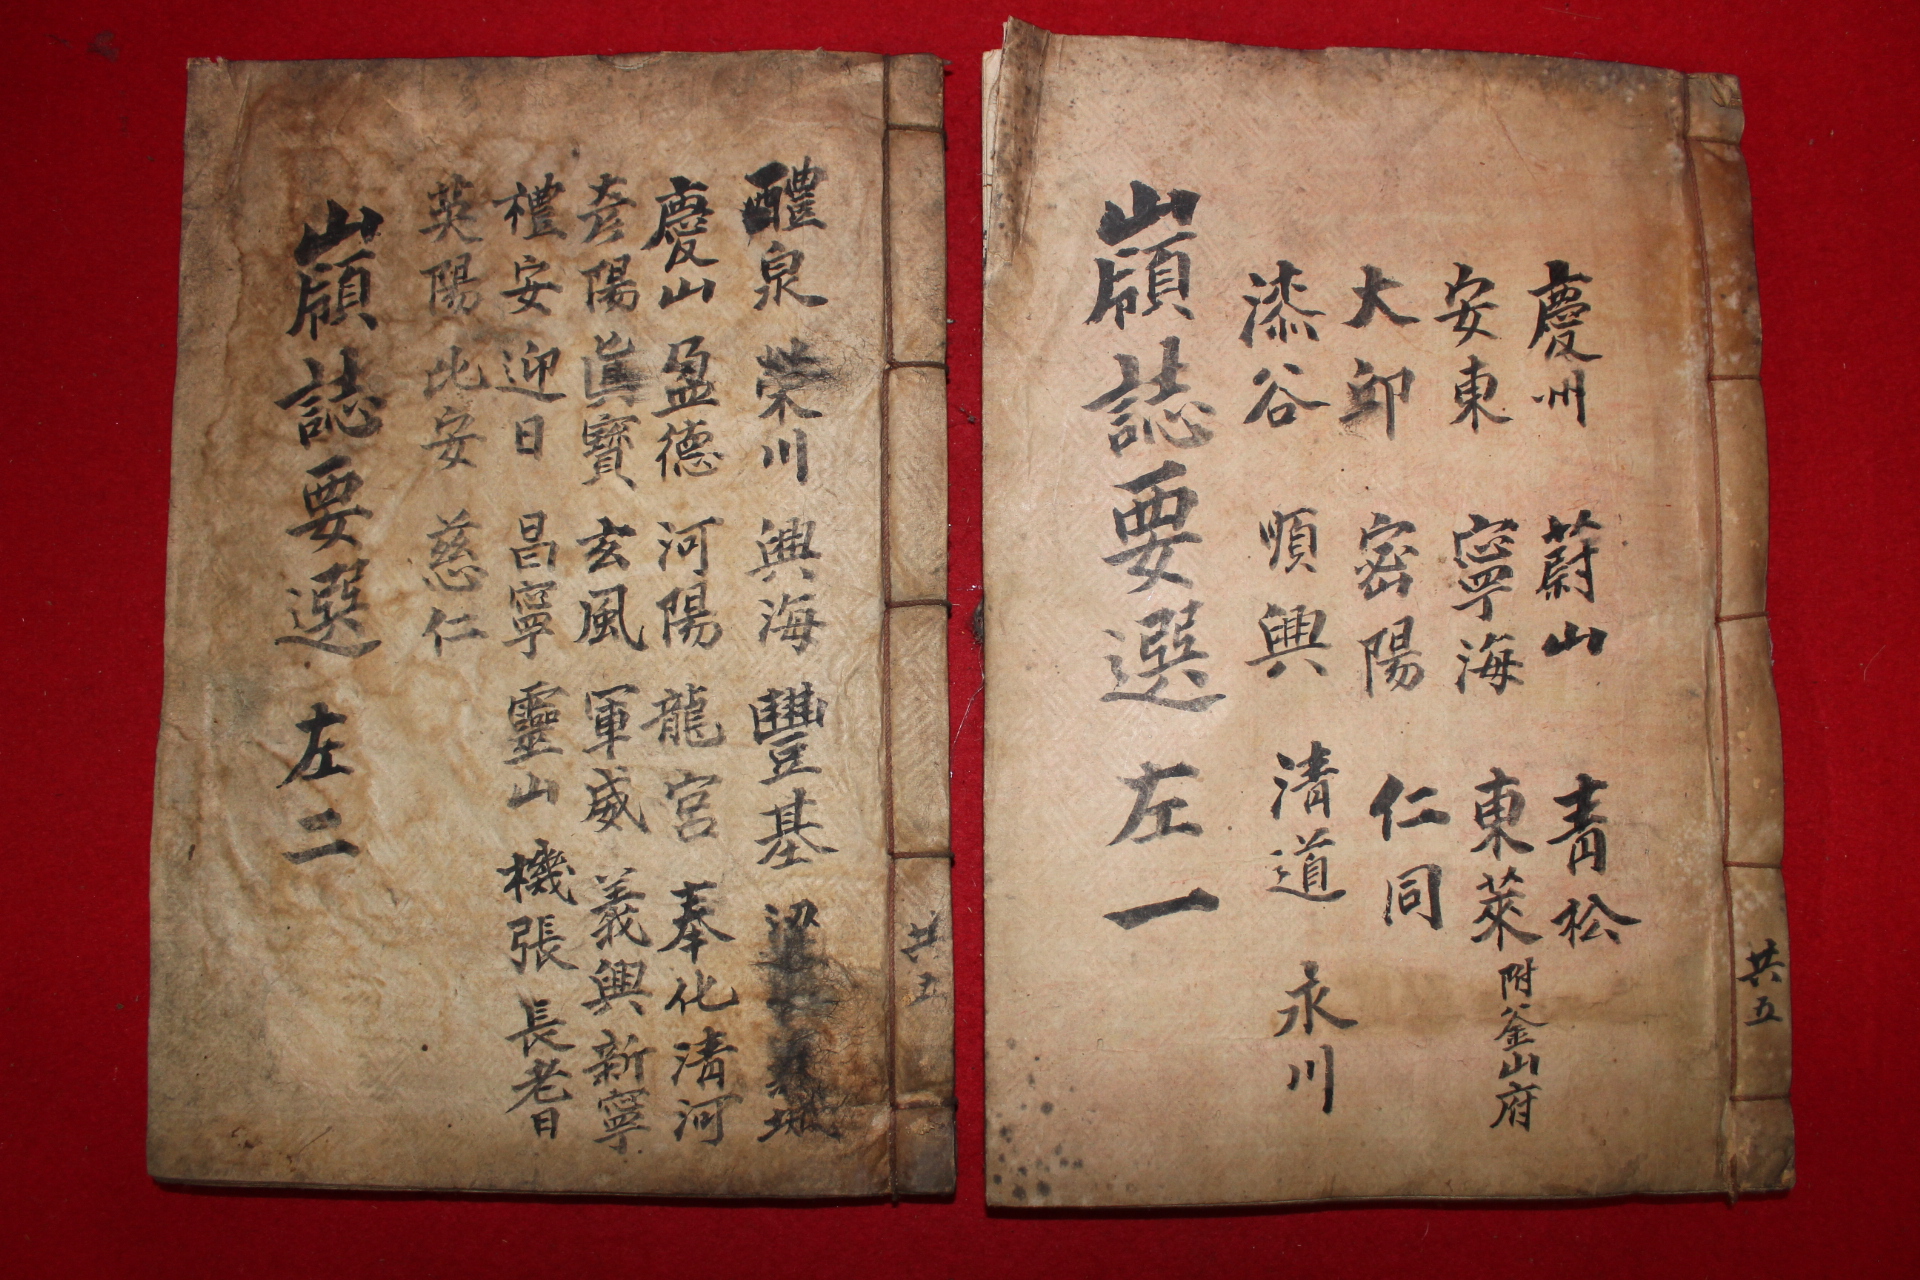 慶州 蔚山 青松
安東 寧海 東萊 附釜山府
大邱 密陽 仁同
漆谷 順興 清道 永川
嶺誌要選 左一
共五
醴泉 榮川 興海 豐基 梁山 義城
慶山 盈德 河陽 龍宮 奉化 清河
彥陽 眞寶 玄風 軍威 義興 新寧
禮安 迎日 昌寧 靈山 機張 長耆
英陽 比安 慈仁
嶺誌要選 左二
共五